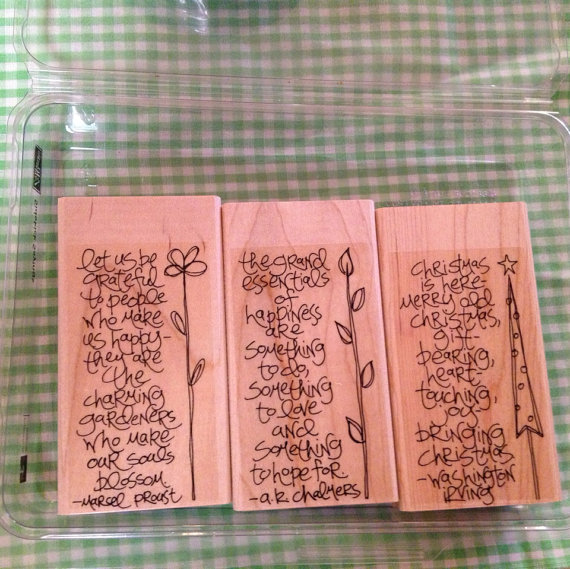 let us be
grateful
to people
who make
us happy-
they are
the
charming
gardeners
who make
our souls
blossom.
-marsel proast
the grand
essentials
of
happiness
are
something
to do,
something
to love
and
something
to hope for.
-a.k. chalmers
christmas
is here-
merry old
christmas,
gift-
bearing,
heart-
touching,
joy
bringing
christmas
-washington
irving